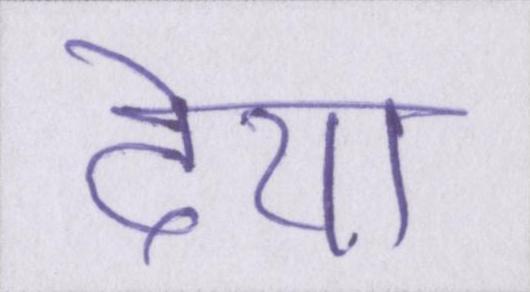 देया